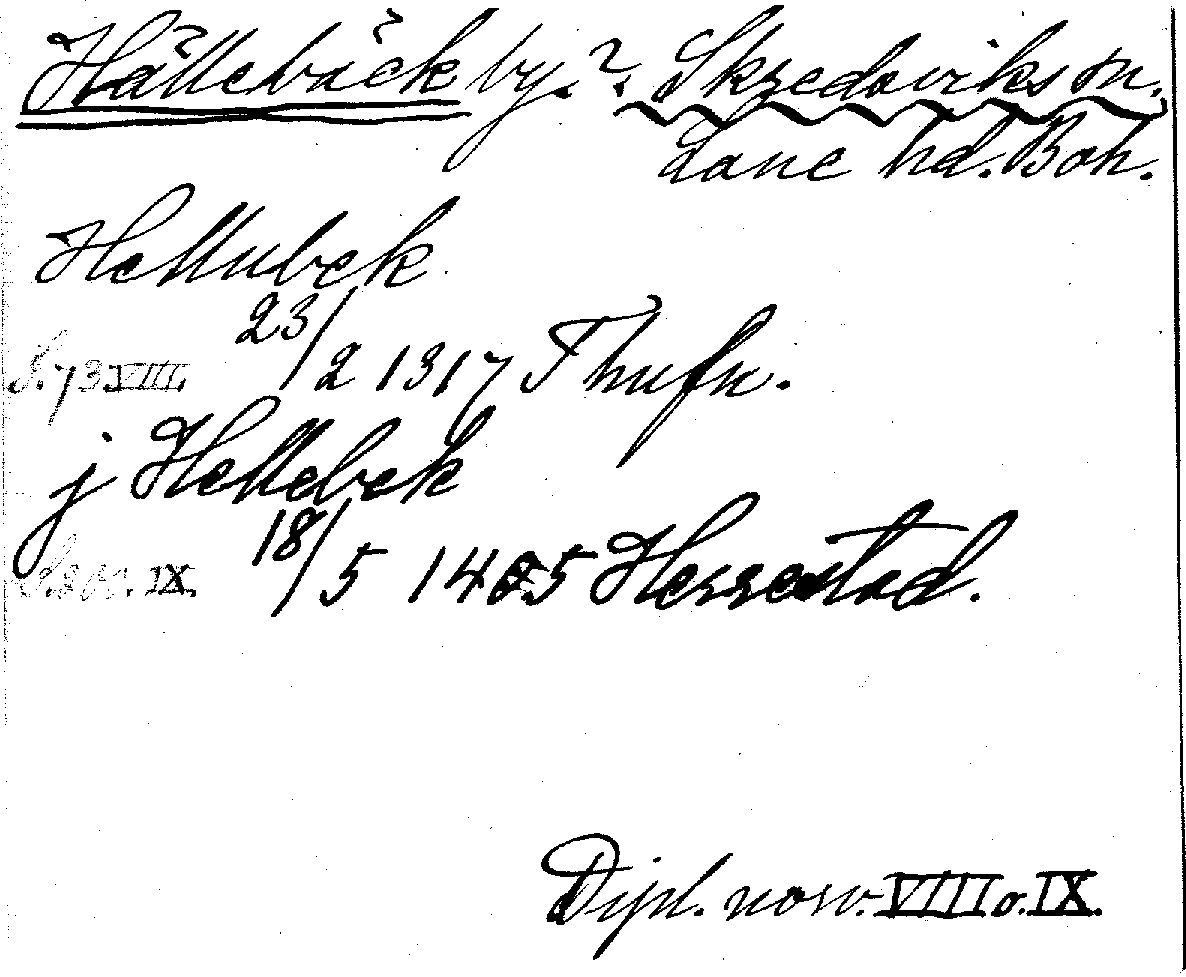 Hällebäck by.? Skredsviks sn.
Lane hd. Boh.
Hellubek
23/2 1317 Thufn.
S. 73 VIII.
j Hellebek
18/5 1405 Herrestad.
IX.
Dipl. norv. VIII o. IX.